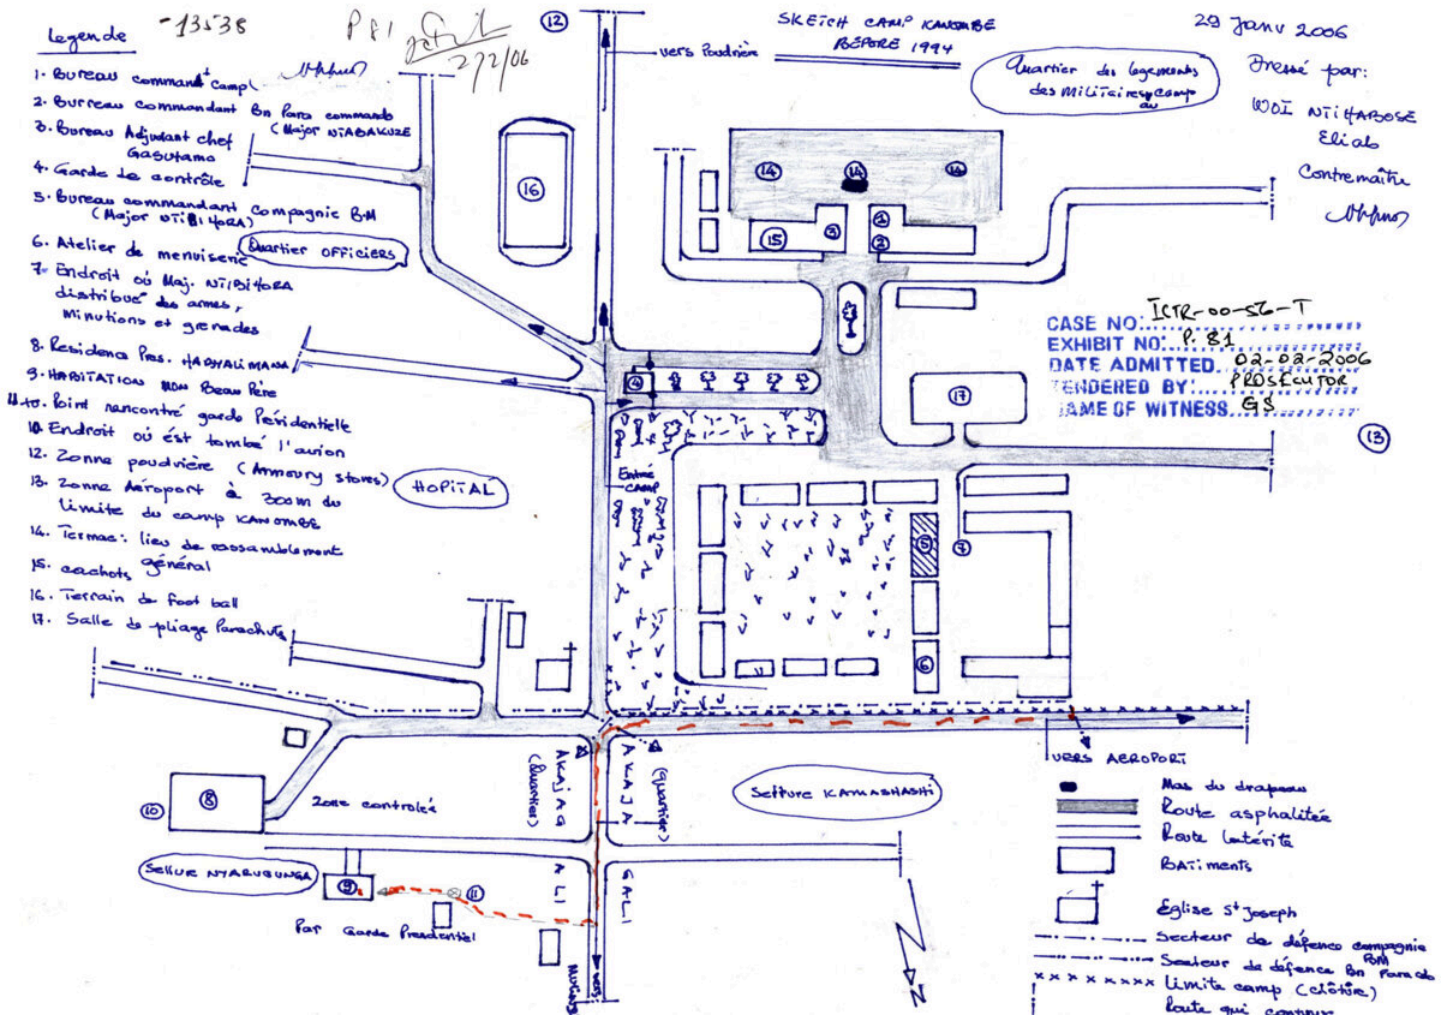 Legende
-13538
P81
2/2/06
1. Bureau command^t Camp
2. Burreau commandant Bn Para commando
(Major NTABAKUZE
3. Bureau Adjudant chef
Gasutamo
4. Garde de contrôle
5. Bureau commandant compagnie B.M
(Major NTIBIHORA)
6. Atelier de menuiserie
7. Endroit où Maj. NTIBIHORA
distribué des armes,
minutions et grenades
8. Residence Pres. HABYALIMANA
9. HABITATION MON Beau Père
Point rencontré garde Présidentielle
Endroit où ést tombé l'avion
12. Zonne poudrière (Armoury stores)
13. Zonne Aéroport à 300m du
limite du camp KANOMBE
14. Termac: lieu de rassamblement
général
15. cachots
16. Terrain de foot ball
17. Salle de pliage Parachute
Quartier OFFICIERS
HOPITAL
12
vers Poudrière
SKETCH CAMP KANOMBE
BEFORE 1994
Quartier des logements
des militaires camp
au
29 Janv 2006
Dressé par:
WOI NTIHABOSE
Eliab
Contremaître
16
14
14
14
15
3
1
2
CASE NO: ICTR-00-56-T
EXHIBIT NO: P. 81
DATE ADMITTED. 02-02-2006
TENDERED BY: PROSECUTOR
NAME OF WITNESS. GS
4
17
13
Entré
CAMP
5
7
6
VERS AEROPORT
AKAJAGALI
(Quartier)
AKAJAGALI
(Quartier)
Zone controleé
8
10
Setture KAMASHASHI
Setture NYARUGUNGA
9
11
Par Garde Presdentiel
vers
N
Mas du drapeau
Route asphalitée
Route latérite
BATiments
Eglise S^t Joseph
Secteur de défence compagnie
BM
Secteur de défence Bn Para cdo
Limite camp (clôture)
Route qui continue